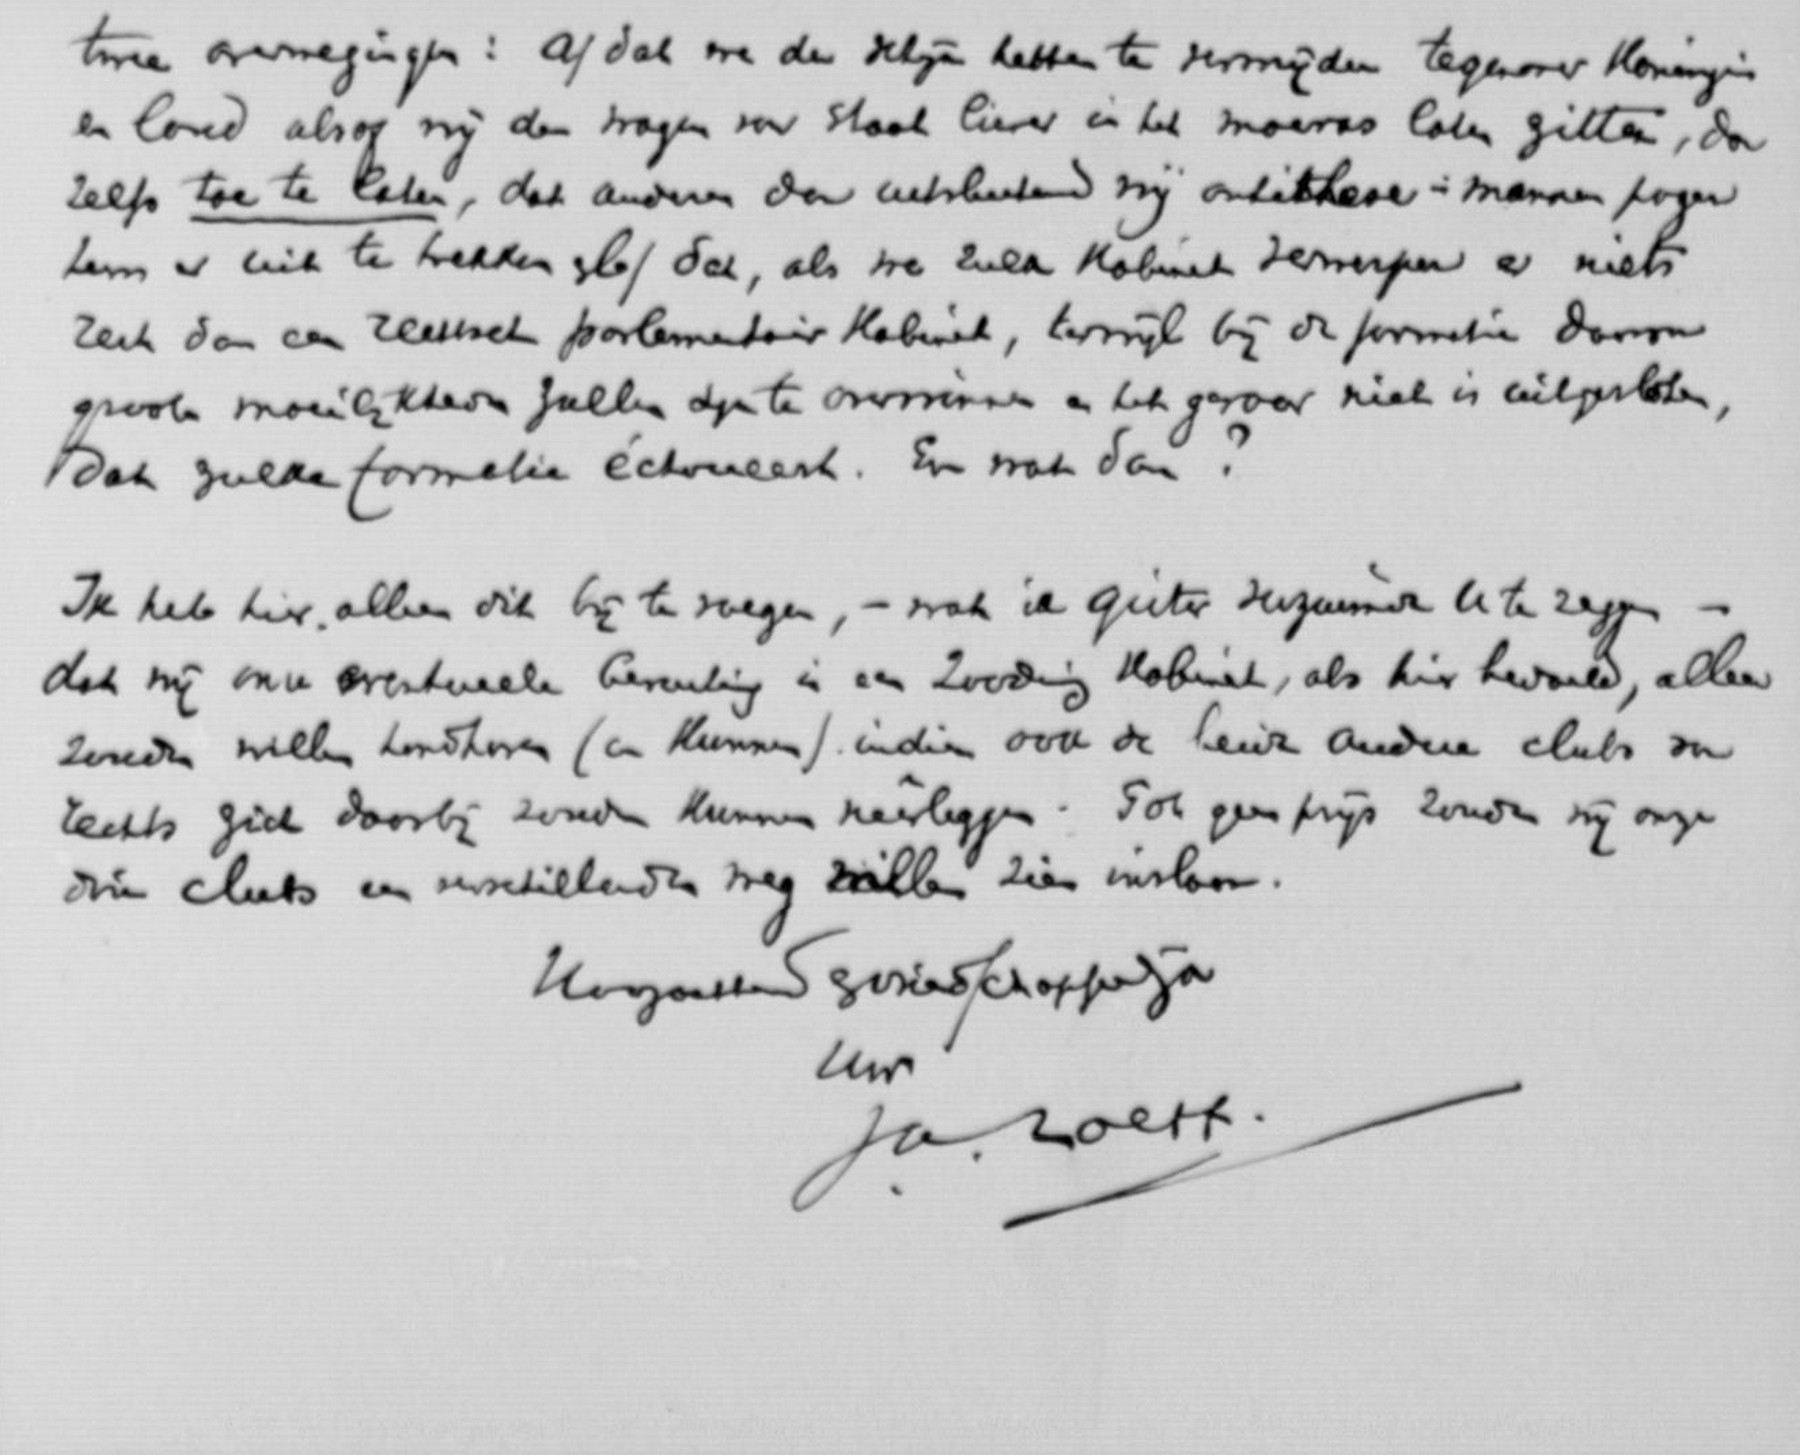 twee overwegingen: a/ dat we den schijn hebben te vermijden tegenover Koningin
en land alsof wij den wagen van Staat liever in het moeras laten zitten, dan
zelfs toe te laten, dat anderen dan uitsluitend wij antithese-mannen pogen
hem er uit te trekken; b/ dat, als we zulk Kabinet verwerpen er niets
rest dan een rechtsch parlementair Kabinet, terwijl bij de formatie daarvan
groote moeilijkheden zullen zijn te overwinnen en het gevaar niet is uitgesloten,
dat zulke formatie échoueert. En wat dan?
Ik heb hier alleen dit bij te voegen, – wat ik gister verzuimde U te zeggen –
dat wij onze eventueele berusting in een zoodanig Kabinet, als hier bedoeld, alleen
zouden willen handhaven (en kunnen) indien ook de beide andere clubs van
rechts zich daarbij zouden kunnen neêrleggen. Tot geen prijs zouden wij onze
drie clubs een verschillenden weg willen zien inslaan.
Hoogachtend
Uw